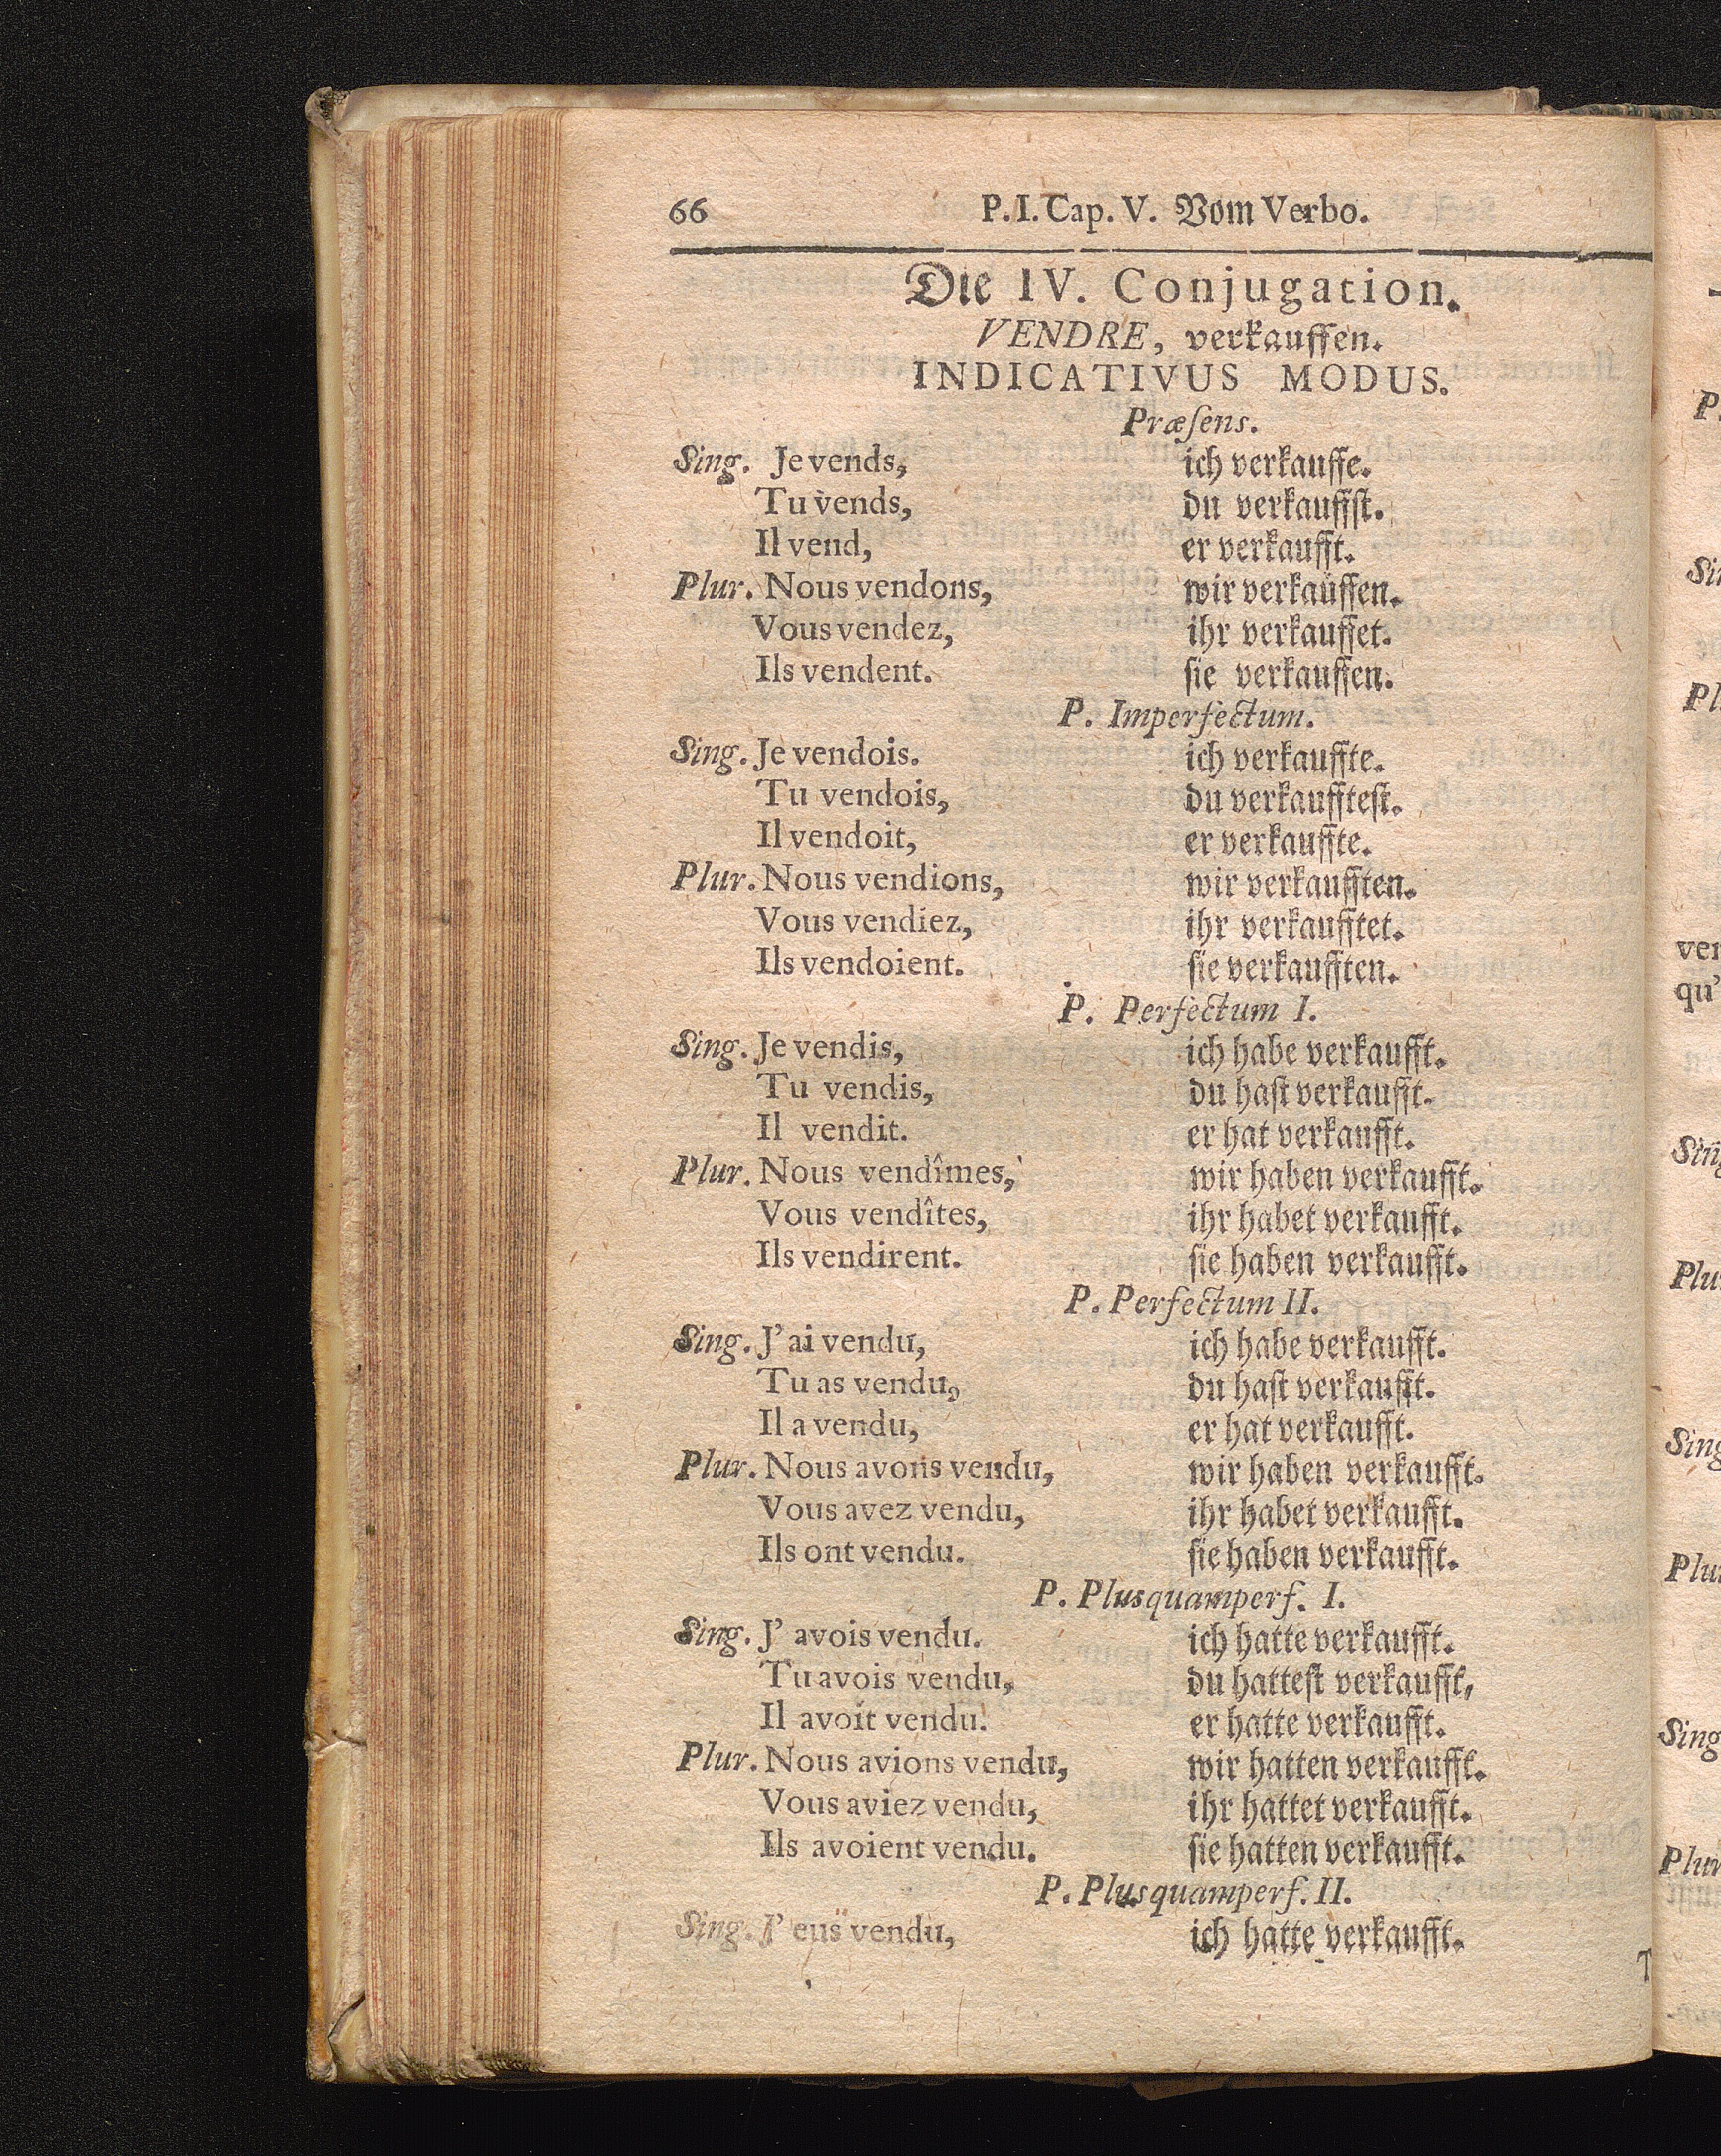 66 P. I. Cap. V. Vom Verbo.
Die IV. Conjugation.
VENDRE, verkauffen.
INDICATIVUS MODUS.
Præſens.
Sing. Je vends, ich verkauffe.
Tu vends, du verkauffſt.
Il vend, er verkaufft.
Plur. Nous vendons, wir verkauffen.
Vous vendez, ihr verkauffet.
Ils vendent. ſie verkauffen.
P. Imperfectum.
Sing. Je vendois. ich verkauffte.
Tu vendois, du verkauffteſt.
Il vendoit, er verkauffte.
Plur. Nous vendions, wir verkaufften.
Vous vendiez, ihr verkaufftet.
Ils vendoient. ſie verkaufften.
P. Perfectum I.
Sing. Je vendis, ich habe verkaufft.
Tu vendis, du haſt verkaufft.
Il vendit. er hat verkaufft.
Plur. Nous vendîmes, wir haben verkaufft.
Vous vendîtes, ihr habet verkaufft.
Ils vendirent. ſie haben verkaufft.
P. Perfectum II.
Sing. J' ai vendu, ich habe verkaufft.
Tu as vendu, du haſt verkaufft.
Il a vendu, er hat verkaufft.
Plur. Nous avons vendu, wir haben verkaufft.
Vous avez vendu, ihr habet verkaufft.
Ils ont vendu. ſie haben verkaufft.
P. Plusquamperf. I.
Sing. J' avois vendu. ich hatte verkaufft.
Tu avois vendu, du hatteſt verkaufft,
Il avoit vendu. er hatte verkaufft.
Plur. Nous avions vendu, wir hatten verkaufft.
Vous aviez vendu, ihr hattet verkaufft.
Ils avoient vendu. ſie hatten verkaufft.
P. Plusquamperf. II.
Sing. J' eus vendu, ich hatte verkaufft.